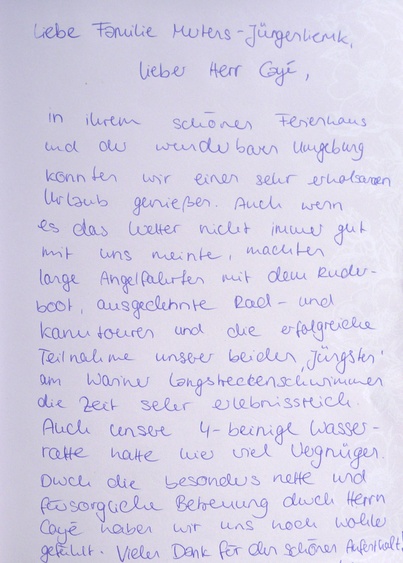 Liebe Familie Muters-Jürgenliemk,
lieber Herr Cayé,
in ihrem schönen Ferienhaus
und der wunderbaren Umgebung
konnten wir einen sehr erholsamen
Urlaub genießen. Auch wenn
es das Wetter nicht immer gut
mit uns meinte, machten
lange Angelfahrten mit dem Ruder-
boot, ausgedehnte Rad- und
Kanutouren und die erfolgreiche
Teilnahme unserer beiden „Jüngsten"
am Wariner Langstreckenschwimmen
die Zeit sehr erlebnisreich.
Auch unsere 4-beinige Wasser-
ratte hatte hier viel Vergnügen.
Durch die besonders nette und
fürsorgliche Betreuung durch Herrn
Cayé haben wir uns noch wohler
gefühlt. Vielen Dank für den schönen Aufenthalt!